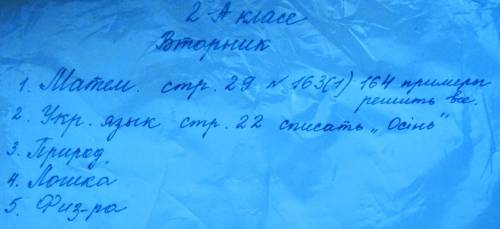 2-А классе
Вторник
1. Матем. стр. 29 № 163(1) 164 примеры
решить все.
2. Укр. язык стр. 22 списать „Осінь"
3. Природ.
4. Логика
5. Физ-ра